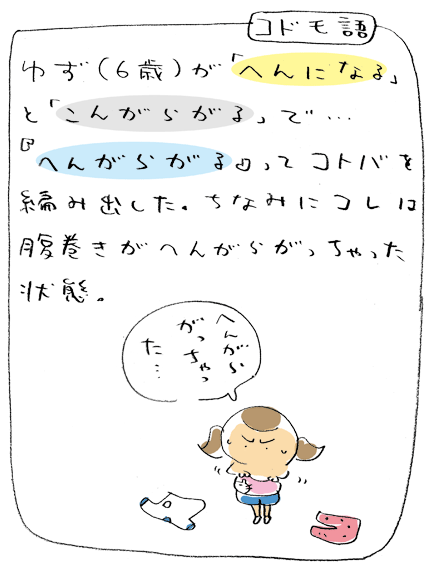 コドモ語
ゆず(6歳)が「へんになる」
と「こんがらがる」で…
『へんがらがる』ってコトバを
編み出した。ちなみにコレは
腹巻きがへんがらがっちゃった
状態。
へんがら
がっちゃっ
た…